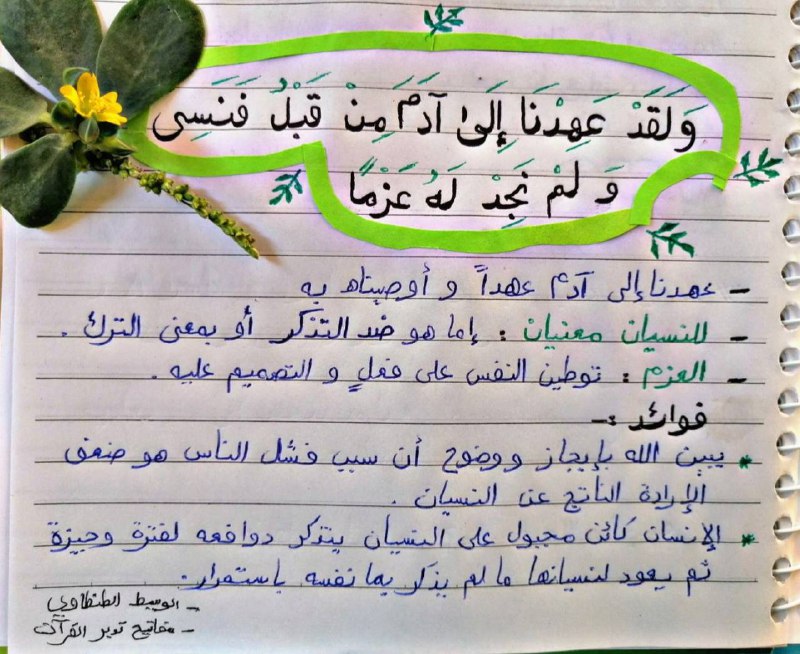 وَلَقَدْ عَهِدْنَا إِلَىٰ آدَمَ مِنْ قَبْلُ فَنَسِىَ
وَلَمْ نَجِدْ لَهُ عَزْمًا
- عهدنا إلى آدم عهداً و أوصيناه به
- للنسيان معنيان : إما هو ضد التذكر أو بمعنى الترك .
- العزم : توطين النفس على فعلٍ و التصميم عليه .
فوائد :-
* يبين الله بإيجاز ووضوح أن سبب فشل الناس هو ضعف
الإرادة الناتج عن النسيان .
* الإنسان كائن مجبول على النسيان يتذكر دوافعه لفترة وجيزة
ثم يعود لنسيانها ما لم يذكر بها نفسه باستمرار .
- الوسيط الطنطاوي
- مفاتيح تدبر القرآن